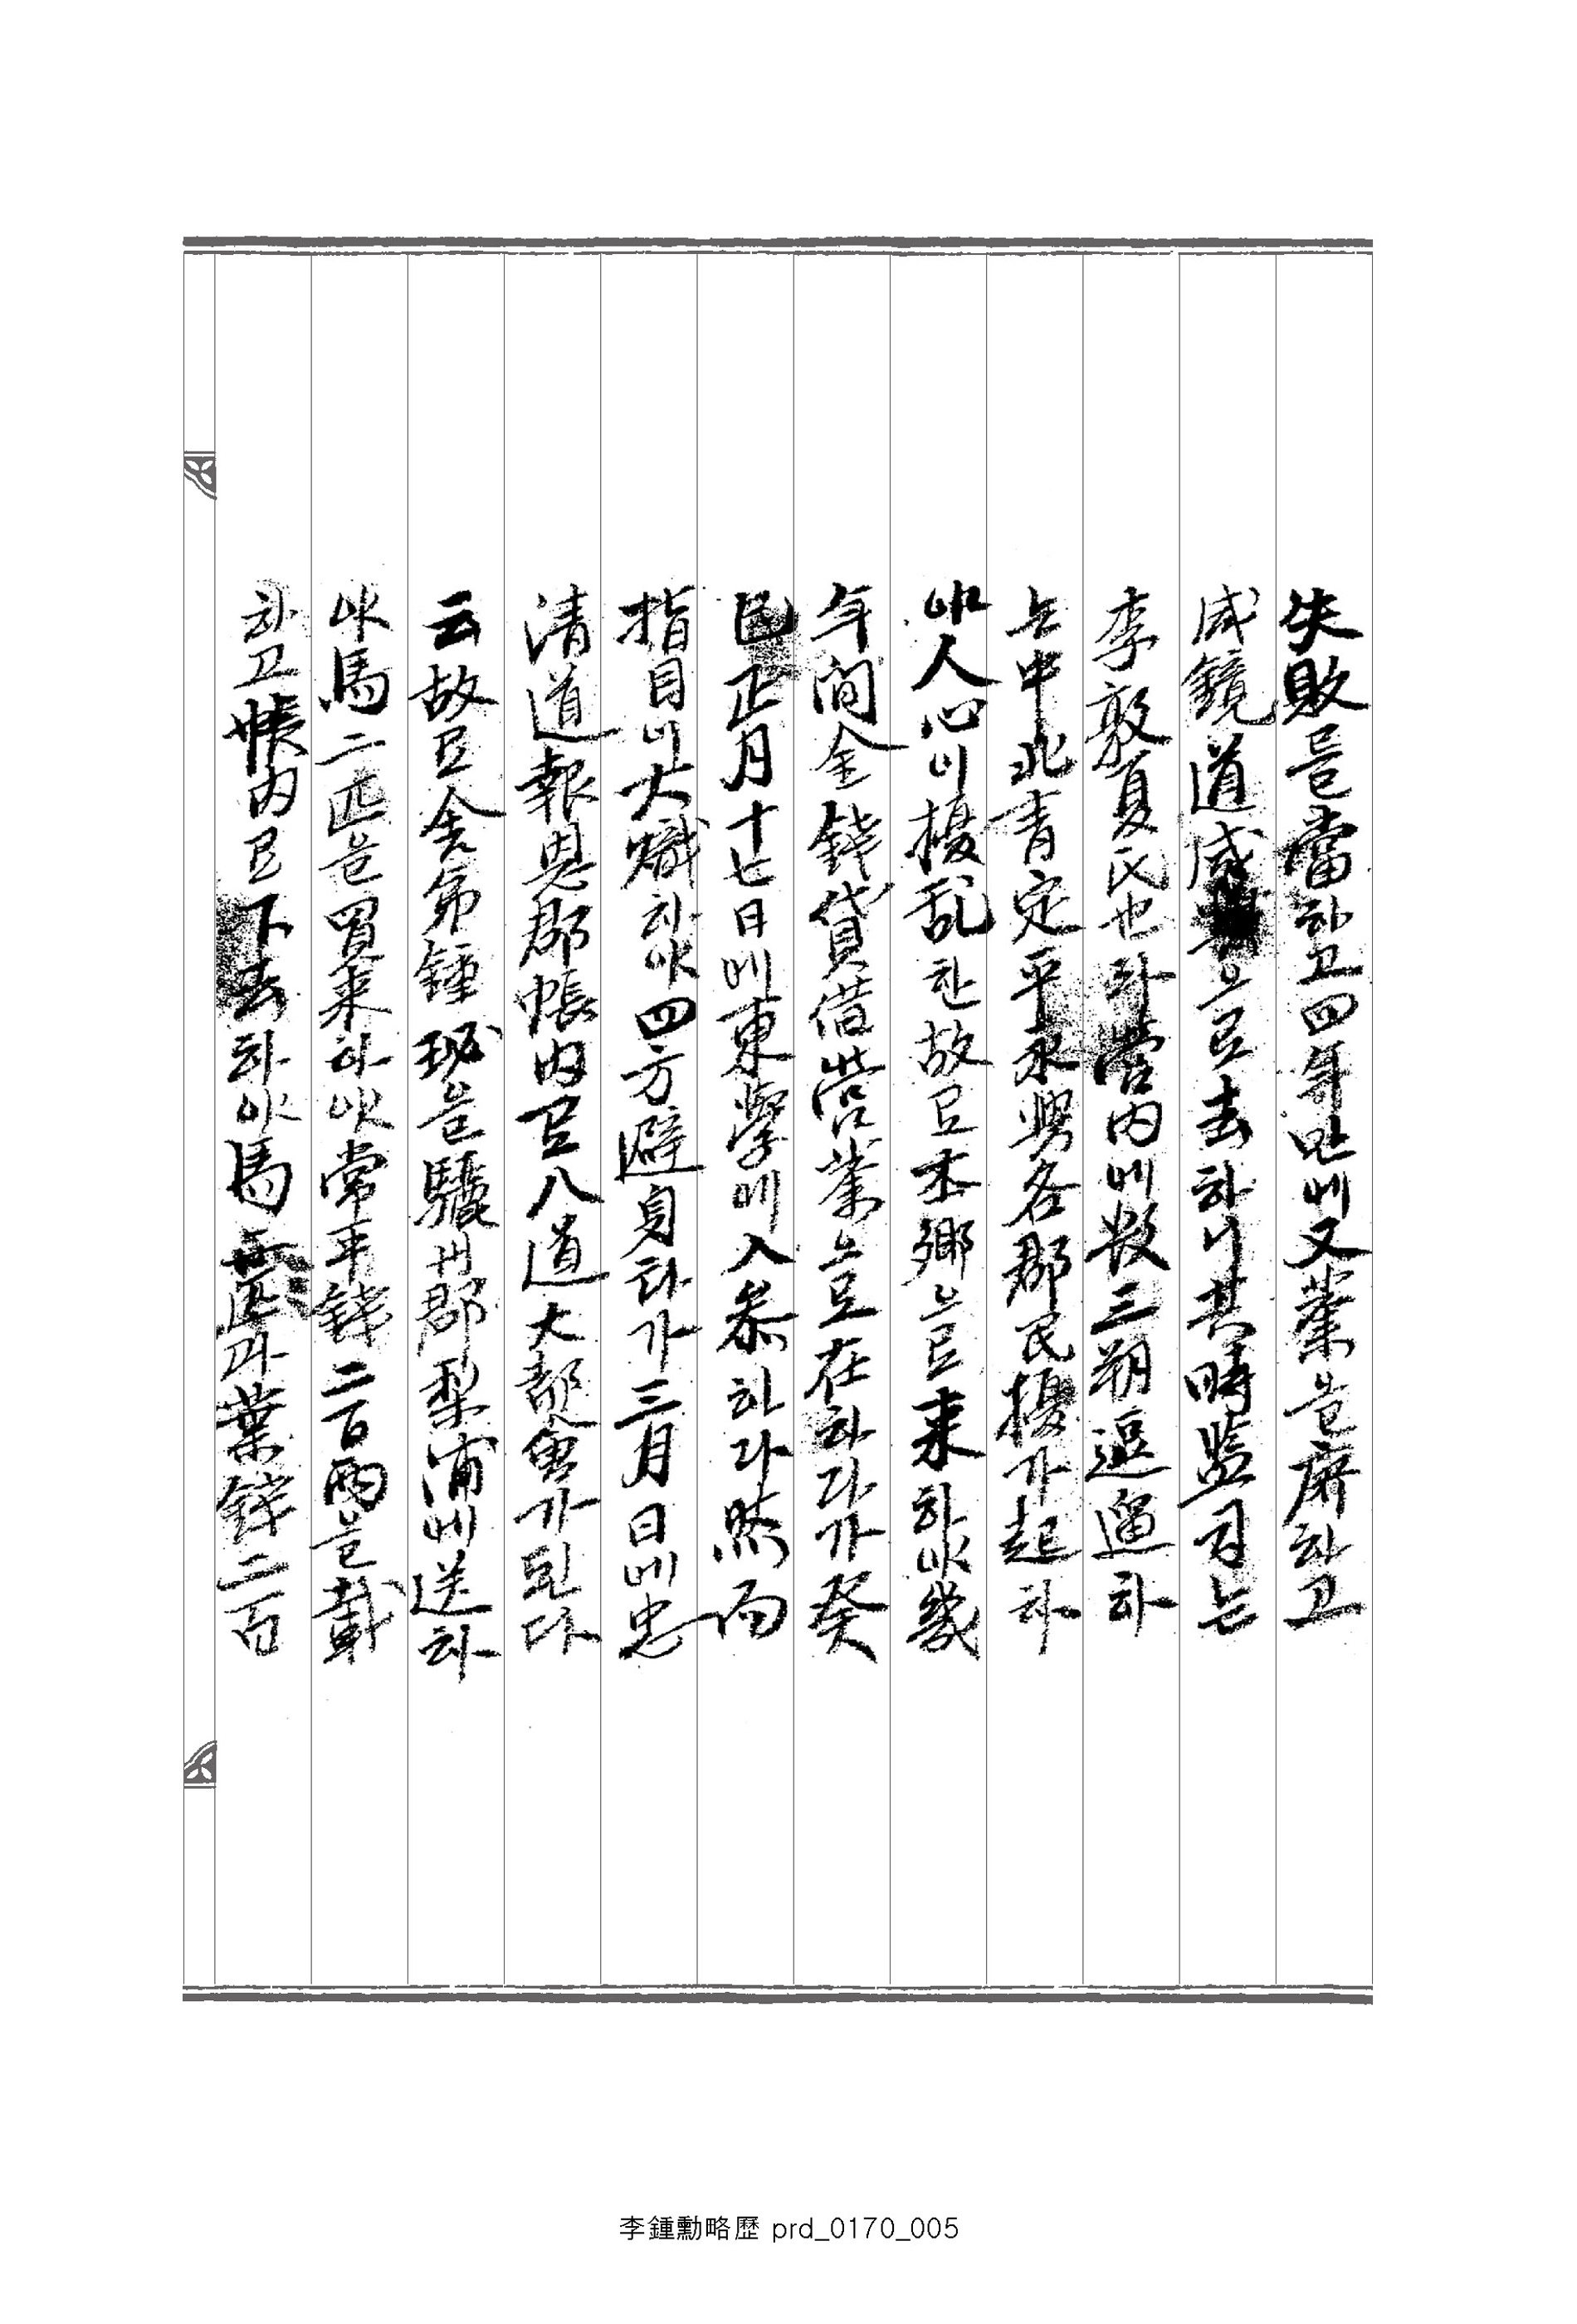 失敗를當하고四年만에又業을廢하고
咸鏡道咸興으로去하니其時監司는
李敦夏氏也라營内에數三朔逗遛하
는中北青定平永興各郡民擾가起하
야人心이擾乱한故로本鄉으로来하야幾
年间金錢貸借營業으로在하다가癸
巳正月十七日에東學에入叅하다然而
指目이大熾하야四方避身하다가三月日에忠
清道報恩郡帳内로八道大都會가된다
云故로舍弟鍾 을驪州郡梨浦에送하
야馬二匹을買来하야常平錢二百兩을載
하고帳内로下去하야馬 匹과葉錢二百
李鍾勳略歷 prd_0170_005